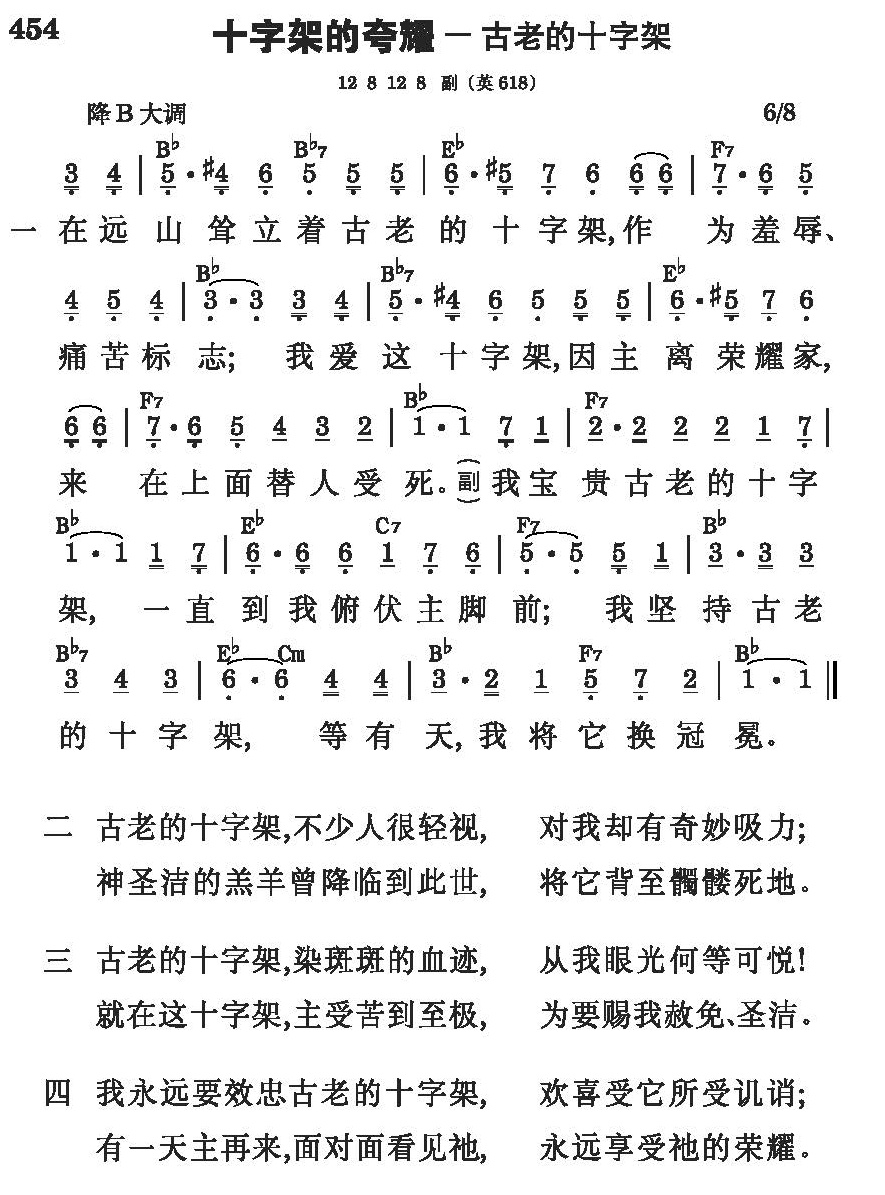 454
十字架的夸耀 — 古老的十字架
12 8 12 8 副（英618）
降B大调 6/8
B♭ B♭7 E♭ F7
3 4 | 5 · #4 6 5 5 5 | 6 · #5 7 6 6 6 | 7 · 6 5
一 在远山耸立着古老的十字架,作为羞辱、
B♭ B♭7 E♭
4 5 4 | 3 · 3 3 4 | 5 · #4 6 5 5 5 | 6 · #5 7 6
痛苦标志; 我爱这十字架,因主离荣耀家,
F7 B♭ F7
6 6 | 7 · 6 5 4 3 2 | 1 · 1 7 1 | 2 · 2 2 2 1 7 |
来在上面替人受死。(副)我宝贵古老的十字
B♭ E♭ C7 F7 B♭
1 · 1 1 7 | 6 · 6 6 1 7 6 | 5 · 5 5 1 | 3 · 3 3
架, 一直到我俯伏主脚前; 我坚持古老
B♭7 E♭ Cm B♭ F7 B♭
3 4 3 | 6 · 6 4 4 | 3 · 2 1 5 7 2 | 1 · 1 ‖
的十字架, 等有天,我将它换冠冕。
二 古老的十字架,不少人很轻视, 对我却有奇妙吸力;
神圣洁的羔羊曾降临到此世, 将它背至髑髅死地。
三 古老的十字架,染斑斑的血迹, 从我眼光何等可悦!
就在这十字架,主受苦到至极, 为要赐我赦免、圣洁。
四 我永远要效忠古老的十字架, 欢喜受它所受讥诮;
有一天主再来,面对面看见祂, 永远享受祂的荣耀。